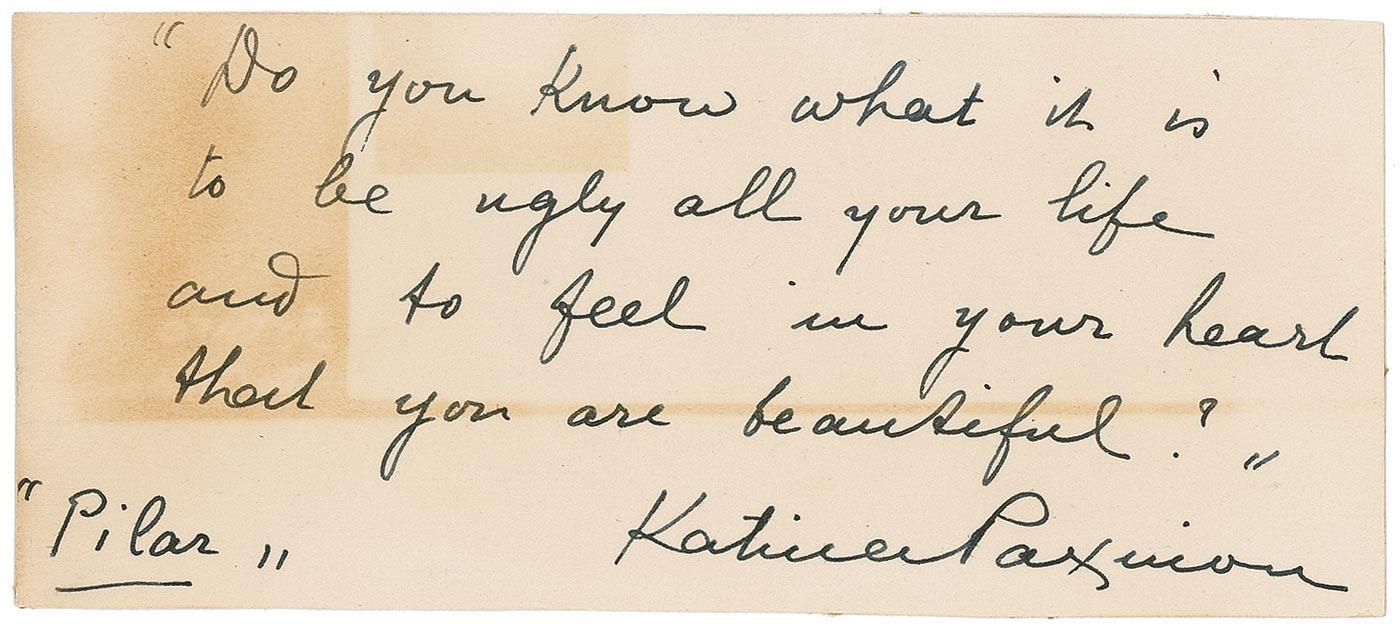 "Do you know what it is
to be ugly all your life
and to feel in your heart
that you are beautiful?"
"Pilar" Katina Paxinou